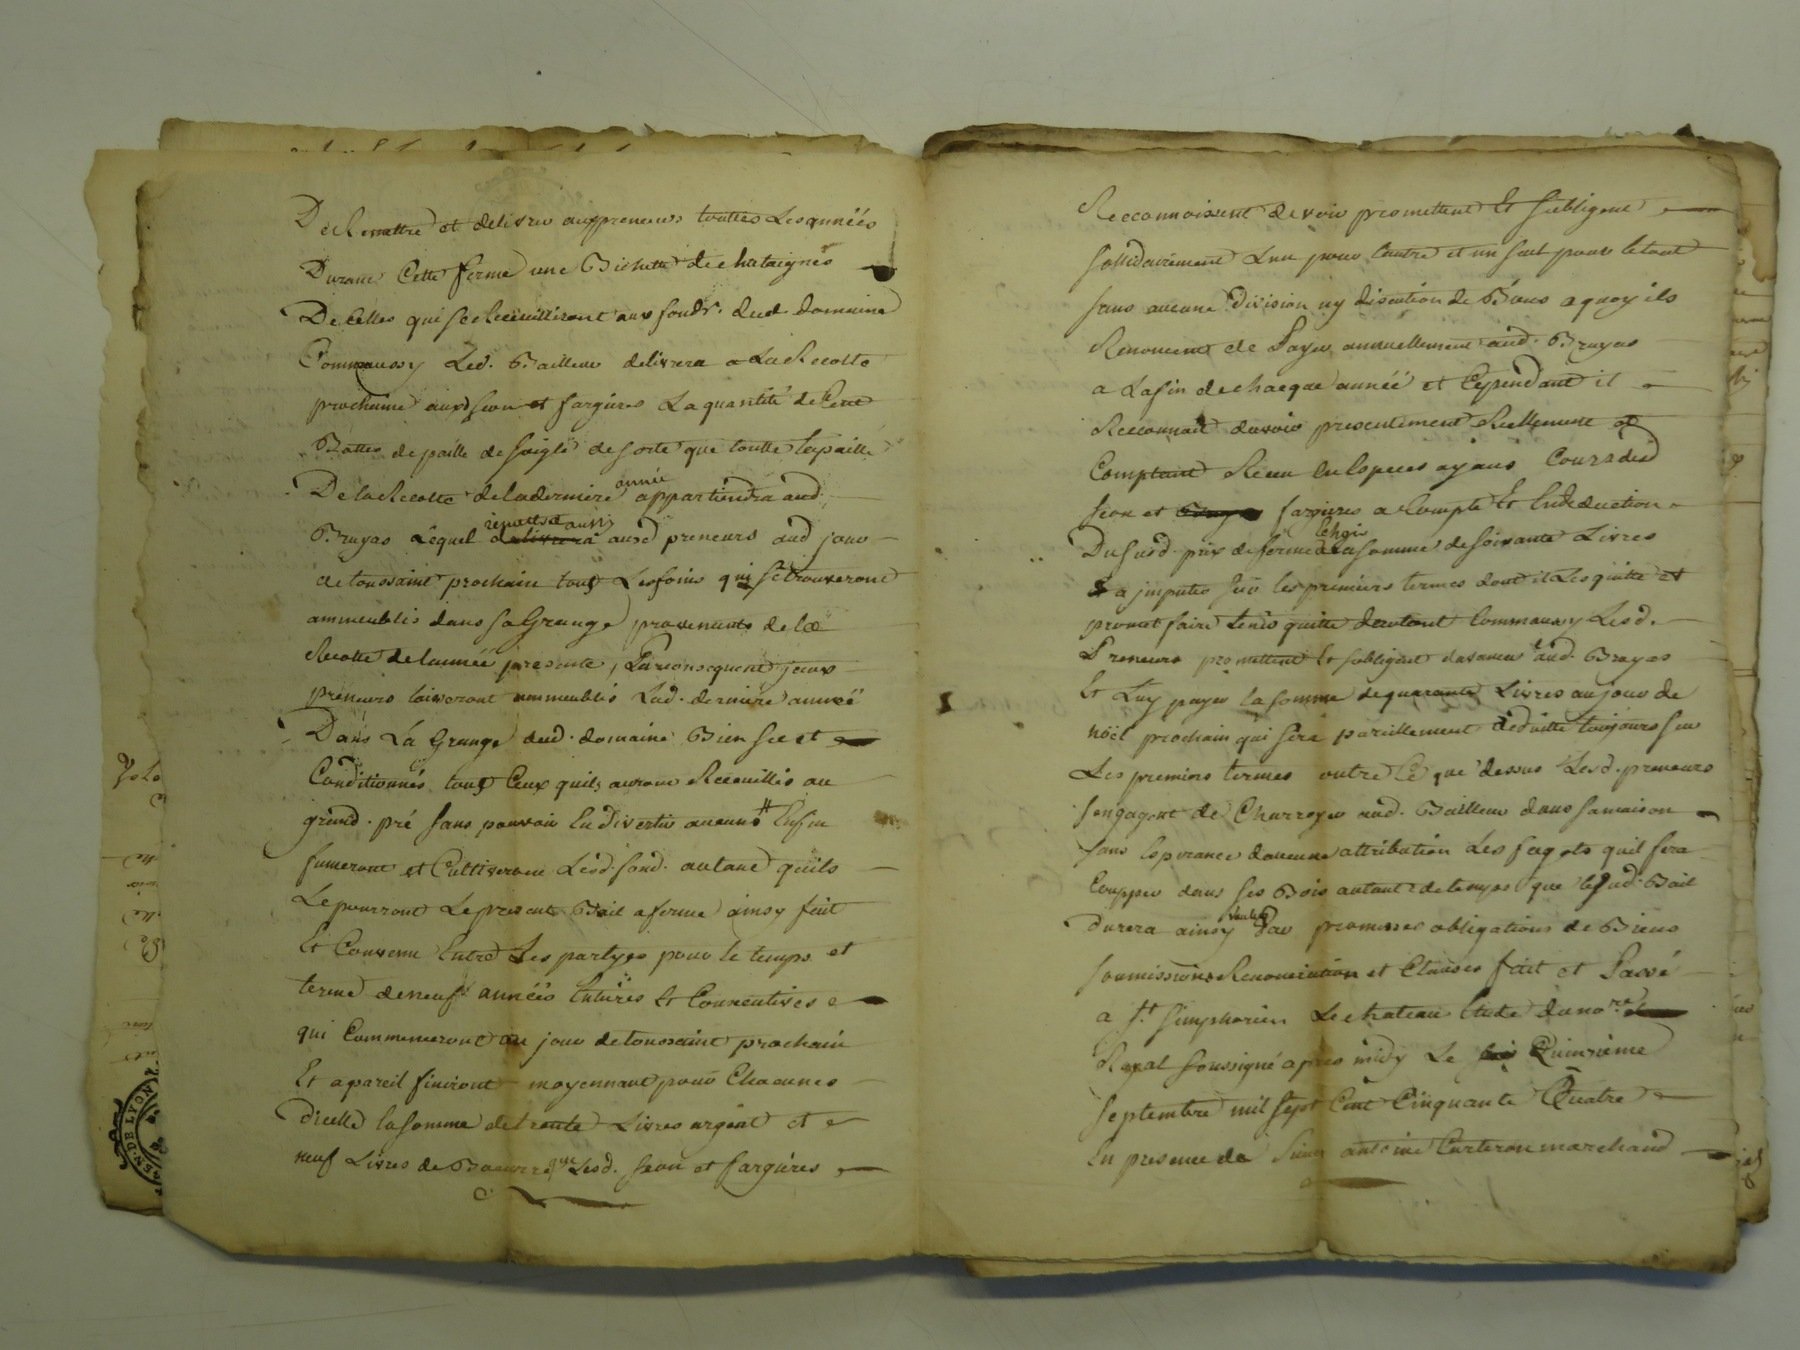 De Remettre et delivrer aux preneurs touttes Les années
Durant Cette ferme une Bichette de chataignes
De Celles qui se Receuilliront aux fonds. dud. domaine
Comm'aussy Led. Bailleur delivrera a La Recolte
prochaine auxd. Seon et fargières La quantité de Cent
Bottes de paille de Seigle de sorte que toutte la paille
De la Recolte de la derniere année appartiendra aud.
Bruyas Lequel remettra aussy auxd. preneurs aud. jour
de toussaint prochain tous Les foins qui se trouveront
ammeublés dans sa Grange provenants de la
Recolte de l'année presente, Par consequent jeaux
preneurs laisseront ammeublés Lad. derniere année
Dans La Grange dud. domaine Bien sec et
Conditionnés tous Ceux quils auront Receuillis au
grand. pré sans pouvoir En divertir aucuns # Enfin
fumeront et Cultiveront Lesd. fond. autant quils
Le pourront Le present Bail a ferme ainsy fait
Et Convenu Entre Les partyes pour le temps et
terme de neuf années Entieres Et Consecutives
qui Commenceront au jour de toussaint prochain
Et a pareil finiront moyennant pour Chacunes
dicelle la somme de trente Livres argent et
neuf Livres de Beurre que Lesd. Seon et fargières
Recconnoissent devoir promettent Et s'obligent
sollidairement L'un pour l'autre et un seul pour le tout
sans aucune division ny discution de Biens a quoy ils
Renoncent de Payer annuellement aud. Bruyas
a La fin de chacque année et Cependant il
Recconnait d'avoir presentement Reellement et
Comptant Receu En Especes ayans Cours desd.
Seon et fargières a Compte Et En deduction
Du susd. prix de ferme la somme de soixante Livres
a jmputer sur les premiers termes dont il Les quitte et
promet faire tenir quitte d'autant Comm'aussy Lesd.
Preneurs promettent Et s'obligent d'avancer aud. Bruyas
Et Luy payer la somme de quarante Livres au jour de
noël prochain qui sera pareillement deduitte toujours sur
Les premiers termes outre Ce que dessus Lesd. preneurs
s'engagent de Charroyer aud. Bailleur dans sa maison
sans Esperance d'aucune attribution Les fagots quil fera
Coupper dans ses Bois autant de temps que le susd. Bail
durera ainsy voulu par promesses obligations de Biens
soumissions Renonciation et Clauses fait et Passé
a St. Simphorien Le chateau Etude du nore.
Royal soussigné apres midy Le Quinzieme
Septembre mil sept Cent Cinquante Quatre
En presence de Sieur antoine Carteron marchand